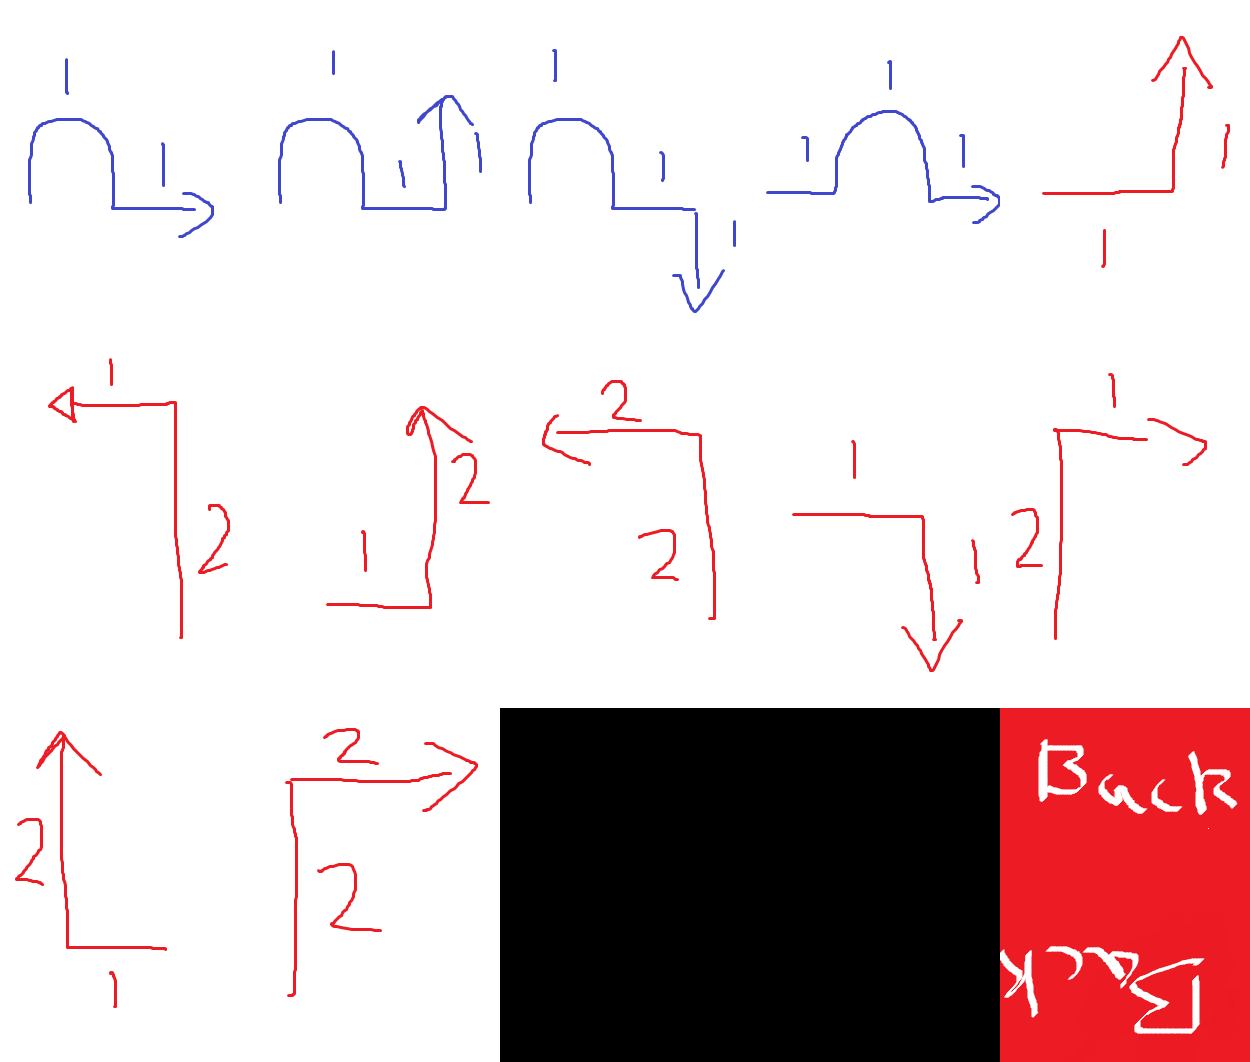 1 1 1 1 1
1 1 1 1 1 1
1 1
1 1 2 1
2 1
2 2 1 2
2
2 2
Back
1
Back